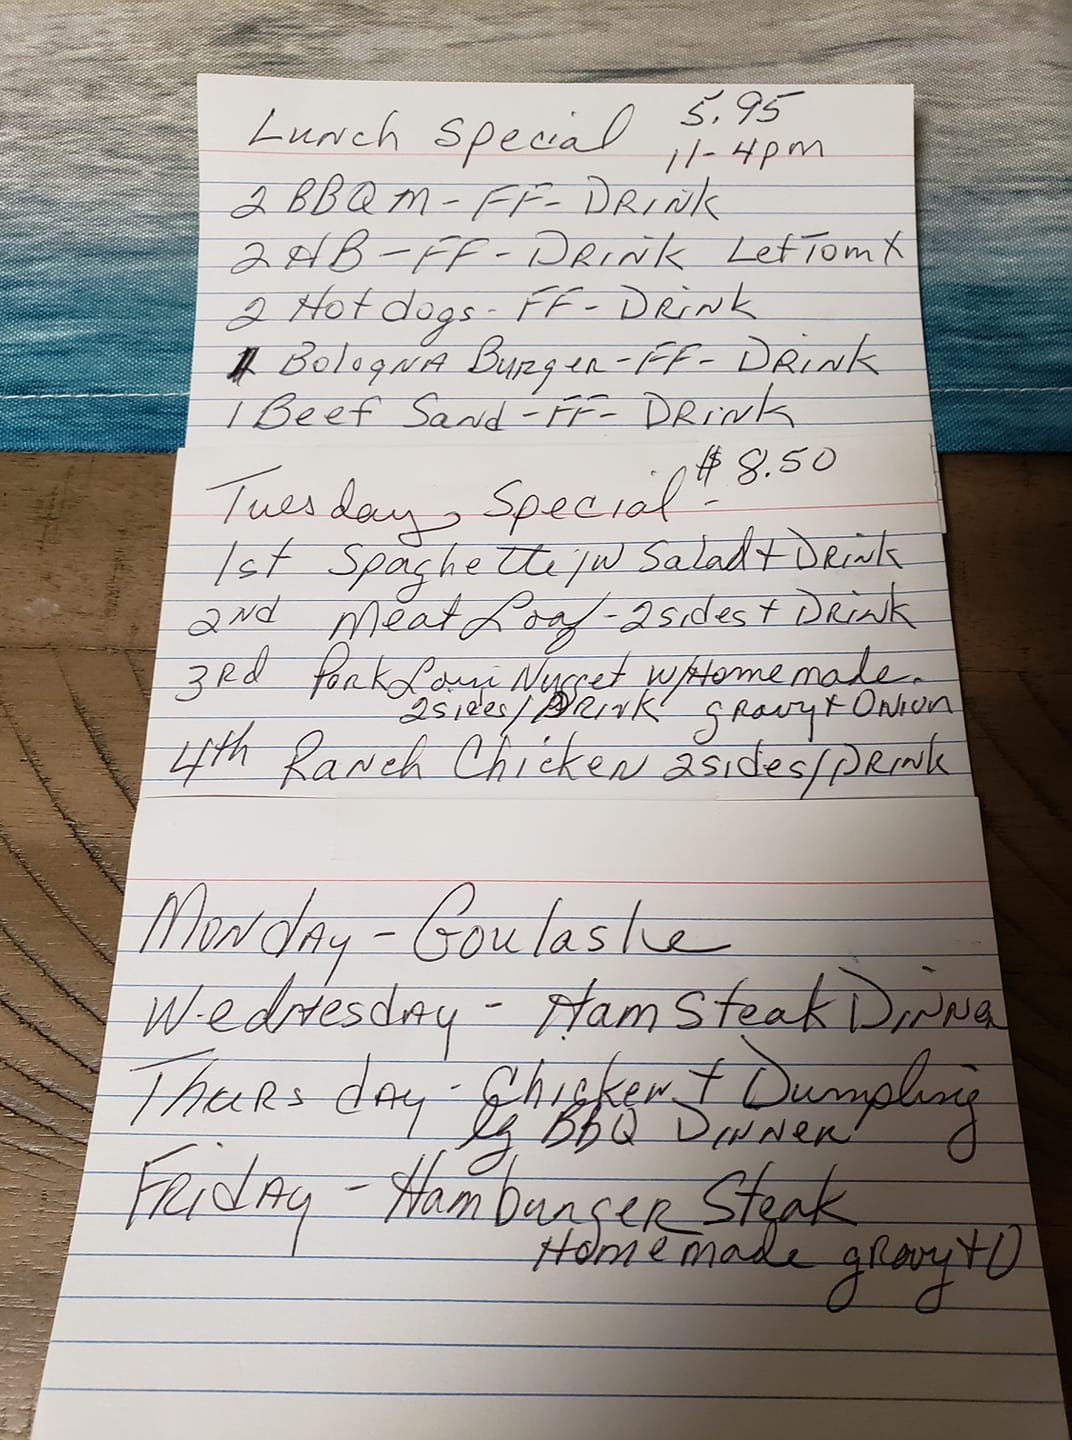 Lunch Special 5.95
11-4pm
2 BBQ M - FF - Drink
2 HB - FF - Drink Let Tom X
2 Hot dogs - FF - Drink
1 Bologna Burger - FF - Drink
1 Beef Sand - FF - Drink
Tuesday, Special - $8.50
1st Spaghetti /w Salad + Drink
2nd Meat Loaf - 2 sides + Drink
3rd Pork Loin Nugget w/Homemade
2 sides / Drink gravy + Onion
4th Ranch Chicken 2 sides / Drink
Monday - Goulashe
Wednesday - Ham Steak Dinner
Thursday - Chicken + Dumpling
lg BBQ Dinner
Friday - Hamburger Steak
Homemade gravy + O